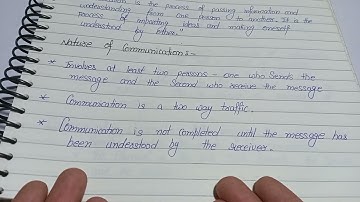 is the process of passing information and
understanding from one person to another. It is the
process of imparting ideas and making oneself
understood by others."
Nature of Communications:-
* Involves at least two persons - one who sends the
message and the second who receive the message
* Communication is a two way traffic.
* Communication is not completed until the message has
been understood by the receiver.